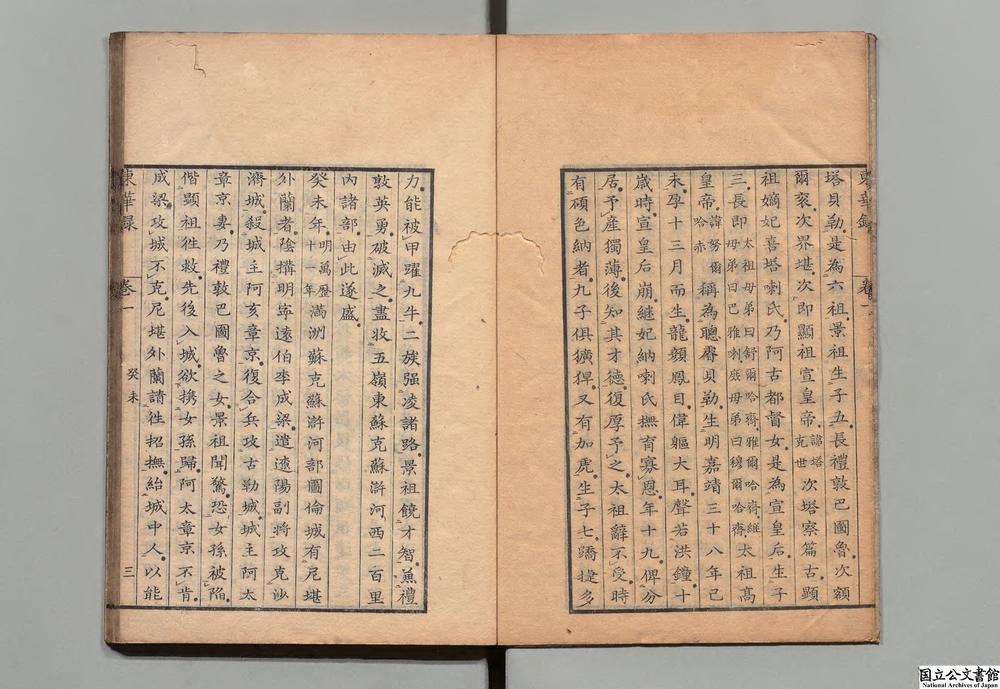 東華錄 卷一
塔貝勒是為六祖景祖生子五長禮敦巴圖魯次額
爾袞次界堪次即顯祖宣皇帝諱塔克世次塔察篇古顯
祖嫡妃喜塔喇氏乃阿古都督女是為宣皇后生子
三長即太祖母弟曰舒爾哈齊雅爾哈齊繼母弟曰巴雅喇庶母弟曰穆爾哈齊太祖高
皇帝諱努爾哈赤稱為聰睿貝勒生明嘉靖三十八年己
未孕十三月而生龍顏鳳目偉軀大耳聲若洪鐘十
歲時宣皇后崩繼妃納喇氏撫育寡恩年十九俾分
居予產獨薄後知其才德復厚予之太祖辭不受時
有碩色納者九子俱獷猂又有加虎生子七蹻捷多
力能被甲躍九牛二族强凌諸路景祖饒才智兼禮
敦英勇破滅之盡收五嶺東蘇克蘇滸河西二百里
內諸部由此遂盛
癸未年明萬歷十一年滿洲蘇克蘇滸河部圖倫城有尼堪
外蘭者陰搆明寧遠伯李成梁遣遼陽副將攻克沙
濟城殺城主阿亥章京復合兵攻古勒城城主阿太
章京妻乃禮敦巴圖魯之女景祖聞驚恐女孫被陷
偕顯祖徃救先後入城欲携女孫歸阿太章京不肯
成梁攻城不克尼堪外蘭請徃招撫紿城中人以能
東華录 卷一 癸未 三
国立公文書館
National Archives of Japan